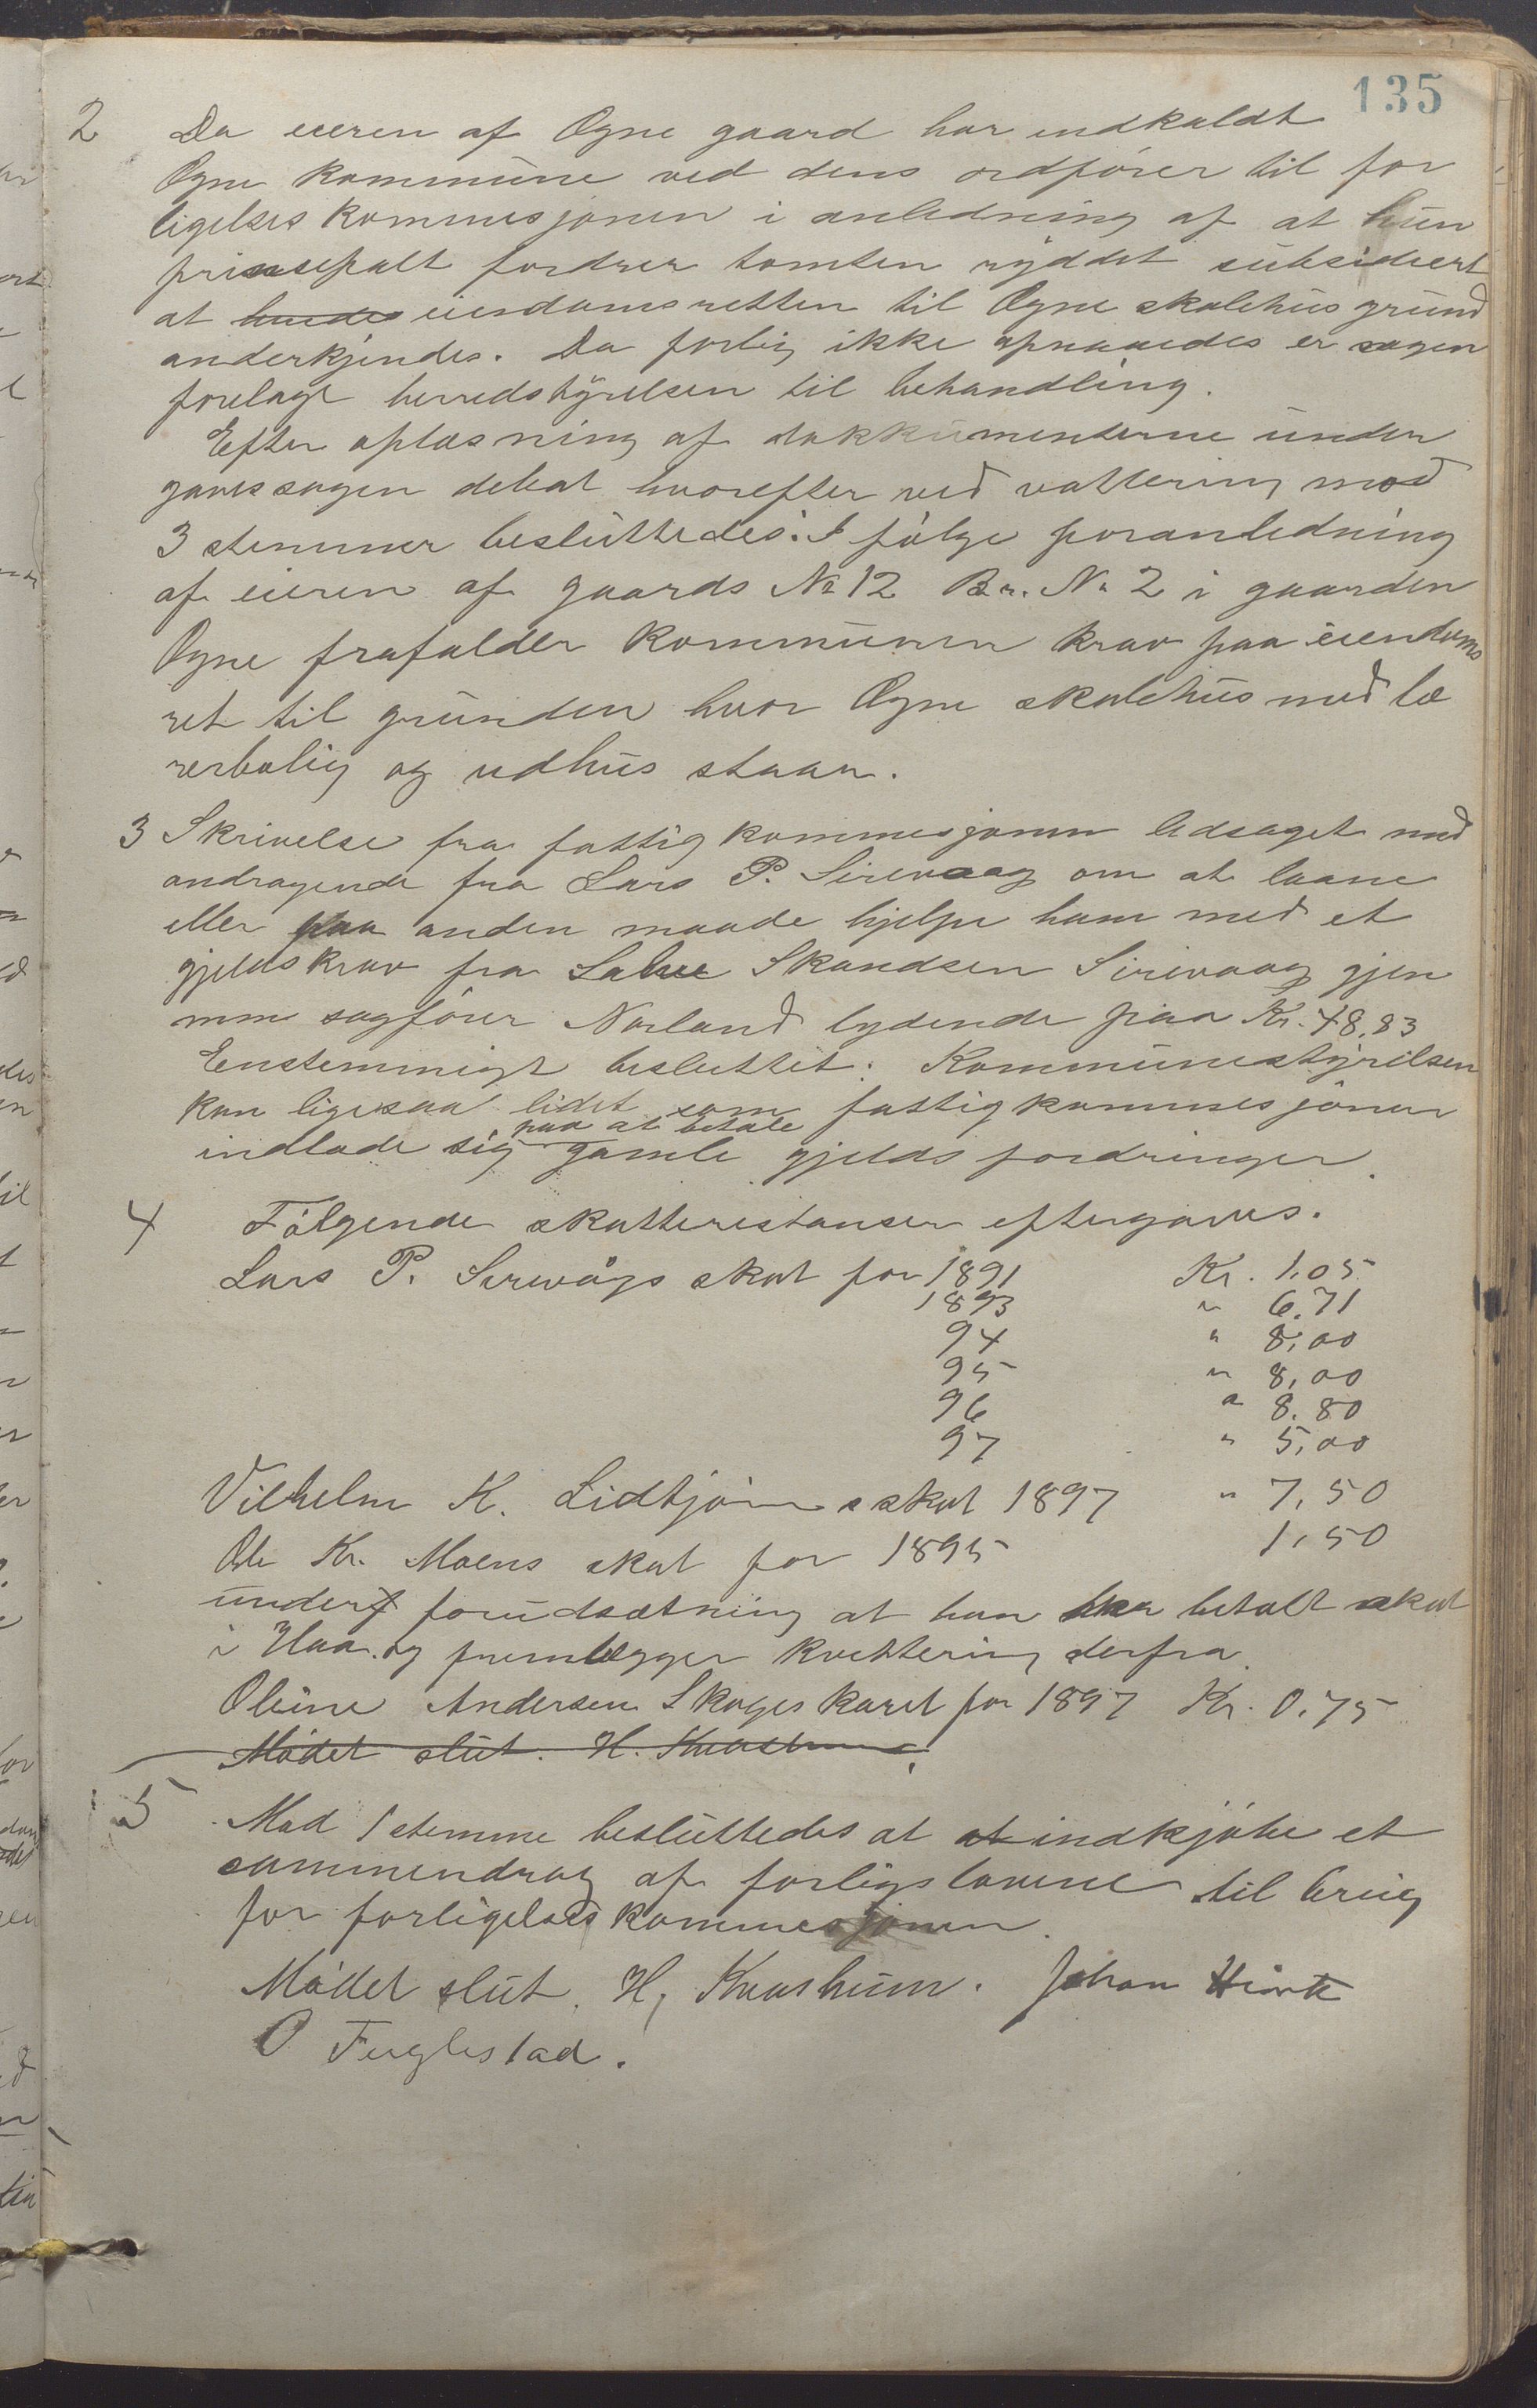 135
2 Da eieren af Ogne gaard har indkaldt
Ogne kommune ved dens ordfører til for
ligelseskommesjonen i anledning af at hun
prinsepalt fordrer tomten ryddet subsidiert
at hendes eiendomsretten til Ogne skolehus grund
anderkjendes. Da forlig ikke opnaaedes er sagen
forelagt herredstyrelsen til behandling.
Efter oplæsning af dokkumenterne under
gaves sagen debat hvorefter ved vottering mod
3 stemmer besluttedes: I følge foranledning
af eieren af gaards No 12 Br. No 2 i gaarden
Ogne frafalder kommunen krav paa eiendoms
ret til grunden hvor Ogne skolehus med læ
rerbolig og udhus staar.
3 Skrivelse fra fattigkommesjonen ledsaget med
andragende fra Lars P. Sirevaag om at laane
eller paa anden maade hjelpe ham med et
gjeldskrav fra Salve Skandsen Sirevaag gjen
nem sagfører Norland lydende paa Kr. 48,83
Enstemmigt besluttet: Kommunestyrelsen
kan ligesaa lidet som fattigkommesjonen
indlade sig paa at betale gamle gjeldsfordringer.
4 Følgende skatterestanser eftergaves.
Lars P. Sirevågs skat for 1891 Kr. 1.05
1893 " 6.71
94 " 8,00
95 " 8,00
96 " 8.80
97 " 5,00
Vilhelm K. Lidtjørns skat 1897 " 7,50
Ole Kr. Moens skat for 1895 1,50
under forudsætning at han har betalt skat
i Haa og fremlægger kvittering derfra
Oline Andersen Skogeskaret for 1897 Kr. 0,75
Mødet slut. H. Kvashum
5 Mod 1 stemme besluttedes at at indkjøbe et
sammendrag af forligslovene til brug
for forligelseskommesjonen.
Mødet slut. H, Kvashum. Johan
O Fuglestad.